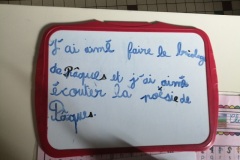 J'ai aimé faire le bricolage
de Pâques et j'ai aimé
écouter la poésie de
Pâques.